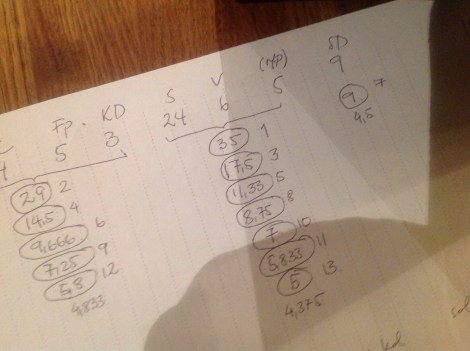 Fp. KD S V (m/p) SD
4 5 3 24 6 5 9
29 2 35 1 9 7
14,5 4 17,5 3 4,5
9,666 6 11,33 5
7,25 9 8,75 8
5,8 12 7 10
4,833 5,833 11
5 13.
4,375